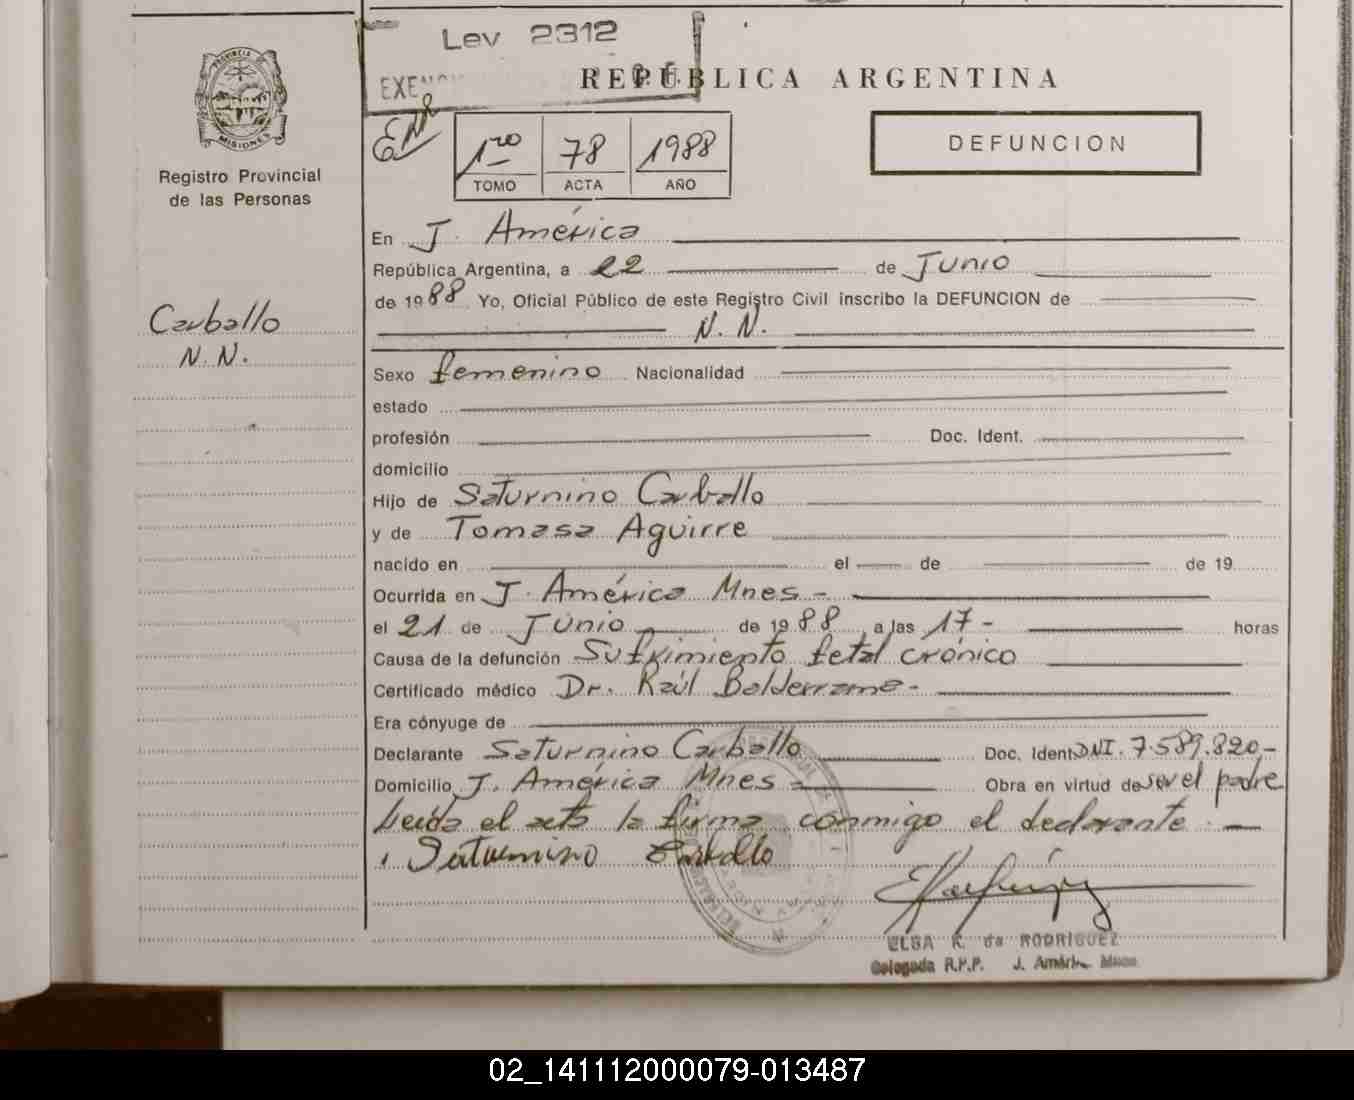 Ley 2312
REPUBLICA ARGENTINA
PROVINCIA DE
MISIONES
Registro Provincial
de las Personas
1ro 78 1988
TOMO ACTA AÑO
DEFUNCION
En J. América
República Argentina, a 22 de Junio
de 1988 Yo, Oficial Público de este Registro Civil inscribo la DEFUNCION de
N. N.
Carballo
N. N.
Sexo femenino Nacionalidad
estado
profesión Doc. Ident.
domicilio
Hijo de Saturnino Carballo
y de Tomasa Aguirre
nacido en el de de 19
Ocurrida en J. América Mnes -
el 21 de Junio de 1988 a las 17 - horas
Causa de la defunción Sufrimiento fetal crónico
Certificado médico Dr. Raúl Balderrama -
Era cónyuge de
Declarante Saturnino Carballo Doc. Ident. DNI. 7.589.820-
Domicilio J. América Mnes - Obra en virtud de ser el padre
Leida el acta la firma conmigo el declarante. -
Saturnino Carballo
ELSA K. de RODRIGUEZ
Delegada R.P.P. J. América Mnes
02_141112000079-013487